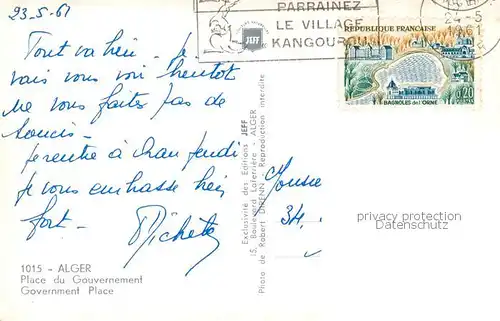 23-5-61
PARRAINEZ
LE VILLAGE
KANGOUROU
JEFF
24-5
1961
REPUBLIQUE FRANCAISE
BAGNOLES de l'ORNE
0,20
Tout va bien - Je
vais vous voir bientôt
Ne vous faites pas de
soucis -
je rentre à
Je vous embrasse bien
fort -
34.
1015 - ALGER
Place du Gouvernement
Government Place
Exclusivité des Editions JEFF
15, Boulevard Laferrière - ALGER
Photo de Robert Reproduction interdite
privacy protection
Datenschutz